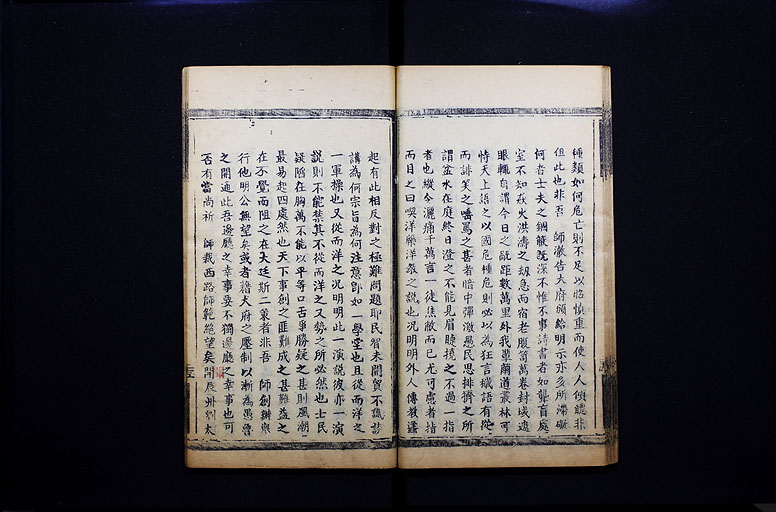 種類如何危亡則不足以臨慎重而使人人傾聽非
但此也非吾 師激告大府頒給明示亦多所滯礙
何者士夫之錮蔽既深不惟不事詩書者如聾盲處
室不知萩火洪濤之刼急而宿老腹笥萬卷封域遮
眼輒自謂今日之 距數萬里外我華 道叢林可
恃天上語之以國危種危則必以為狂言讖語有從
而誹笑之嚆罵之甚者暗中彈激愚民思排擠之所
謂盆水在庭終日澄之不能見眉睫撓之不過一指
者也縱令灑痛千萬言一徒焦敝而已尤可慮者指
而目之曰喫洋藥洋教之說也况明明外人傳教講
起有此相反對之極難問題耶民智未開貿不識
講為何宗旨為何注意即如一學堂也且從而洋之
一軍操也又從而洋之况明明此一演說彼亦一演
說則不能禁其不從而洋之又勢之所必然也士民
疑陷在胸萬不能以平等口舌爭勝疑之甚則風潮
最易起四處然也天下事創之匪難成之甚難益之
在不覺而阻之在大廷斯二策者非吾 師創辦與
行他明公無望矣或者藉大府之壓制以漸為愚魯
之開通此吾邊廳之幸事要不獨邊廳之幸事也可
否有當尚祈 師裁西路師範絕望矣聞辰州劉太